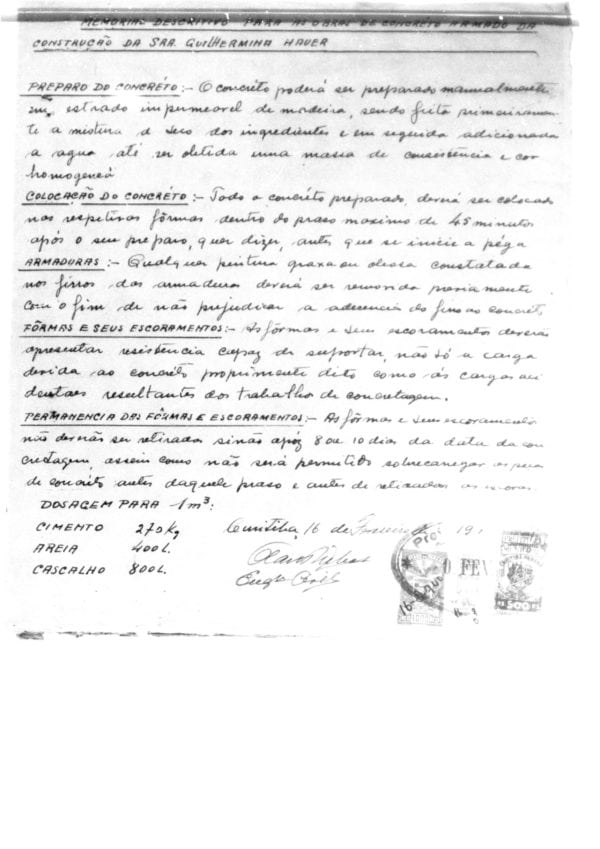 MEMORIAL DESCRITIVO PARA AS OBRAS DE CONCRÉTO ARMADO DA
CONSTRUÇÃO DA SRA. GUILHERMINA HAUER
PREPARO DO CONCRÉTO:- O concréto poderá ser preparado manualmente
em estrado impermeavel de madeira, sendo feita primeiramen-
te a mistura a seco dos ingredientes e em seguida adicionada
a agua até ser obtida uma massa de consistência e cor
homogeneá
COLOCAÇÃO DO CONCRÉTO:- Todo o concréto preparado, deverá ser colocado
nas respetivas fôrmas dentro do praso maximo de 45 minutos
após o seu preparo, quer dizer, antes que se inicie a péga
ARMADURAS:- Qualquer pintura graxa ou oleosa constatada
nos ferros das armaduras deverá ser removida previamente
com o fim de não prejudicar a aderencia do ferro ao concreto
FÔRMAS E SEUS ESCORAMENTOS:- As fôrmas e seus escoramentos deverão
apresentar resistência capaz de suportar, não só a carga
devida ao concréto propriamente dito como ás cargas aci
dentaes resultantes dos trabalho de concretagem.
PERMANENCIA DAS FÔRMAS E ESCORAMENTOS:- As fôrmas e seus escoramentos
não deverão ser retirados sinão apóz 8 ou 10 dias da data da con
cretagem, assim como não será permitido sobrecarregar as peças
de concréto antes daquele praso e antes de retiradas as escoras
DOSAGEM PARA 1m³:
CIMENTO 270Kg Curitiba, 16 de Fevereiro 19
AREIA 400L.
CASCALHO 800L.
FEV
500